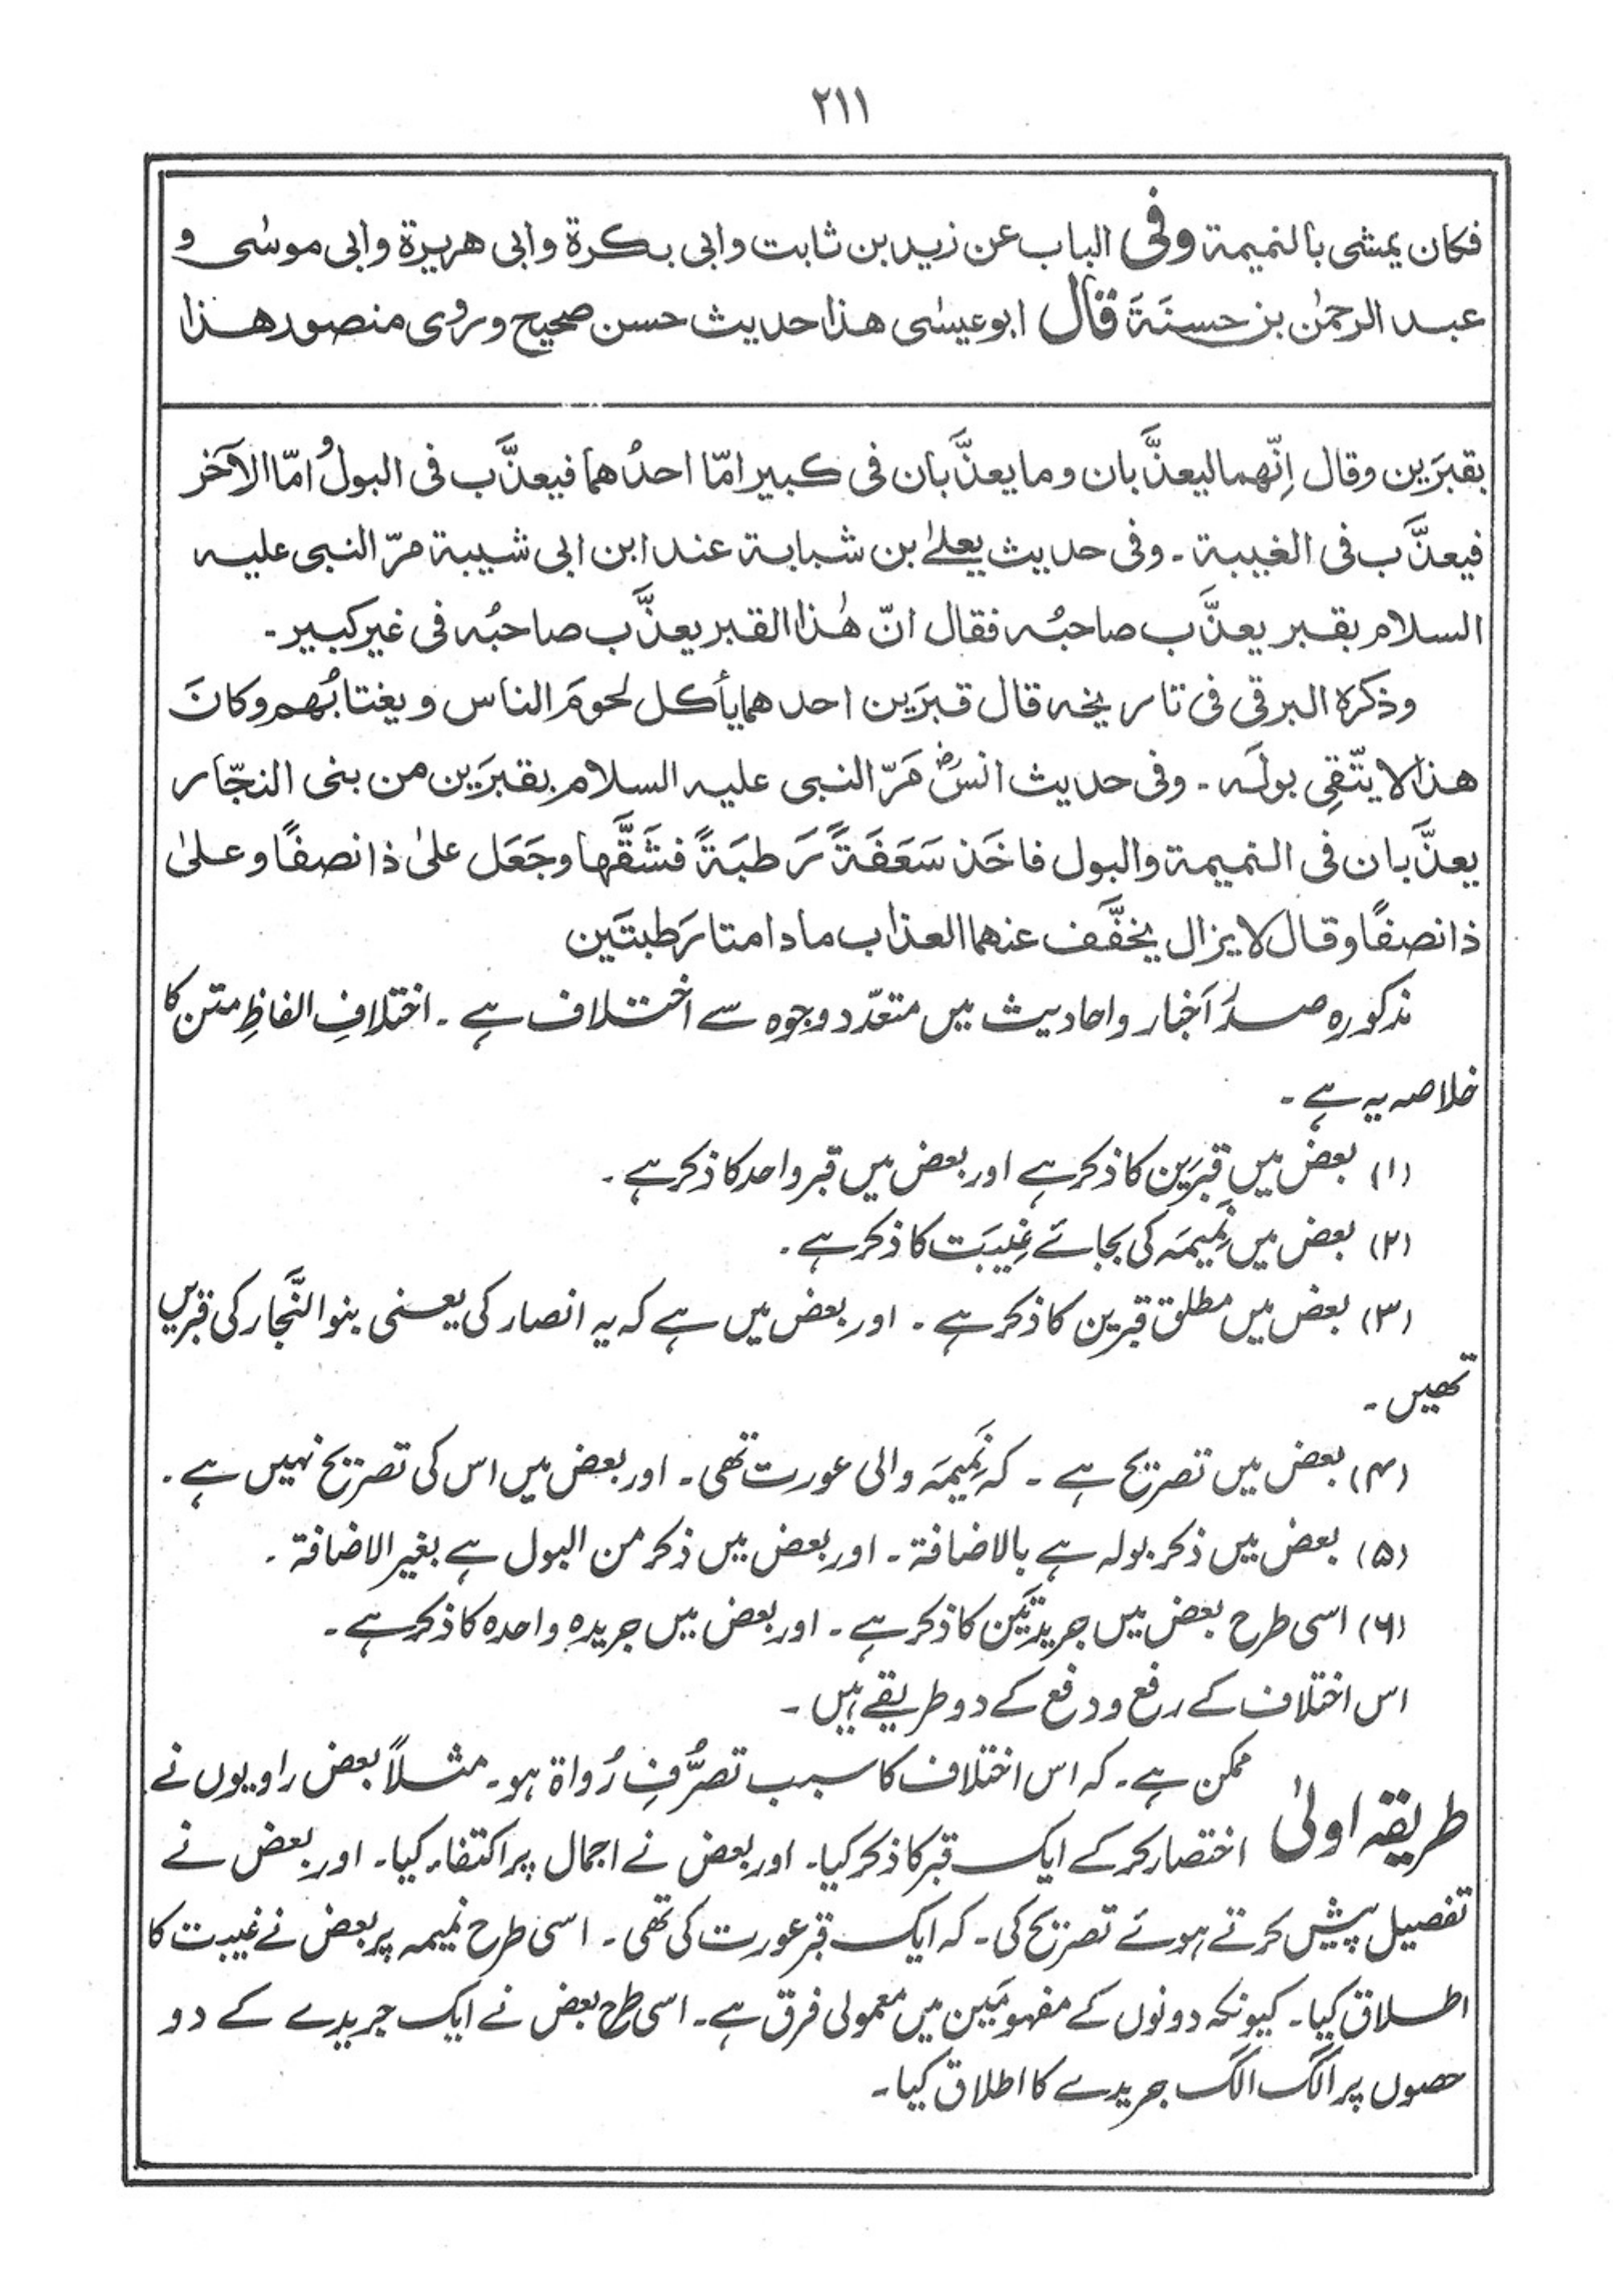 ۲۱۱
فکان یمشی بالنمیمة وفی الباب عن زید بن ثابت وابی بکرة وابی هریرة وابی موسٰی و
عبد الرحمٰن بن حسنَةَ قال ابوعیسٰی هذا حدیث حسن صحیح وروی منصور هذا
بقبرَین وقال اِنّهما لیعذَّبان وما یعذَّبان فی کبیر امّا احدُهما فیعذَّب فی البولُ وامّا الآخر
فیعذَّب فی الغیبة ۔ وفی حدیث یعلےٰ بن شبابة عند ابن ابی شیبة مرّ النبی علیه
السلام بقبر یعذَّب صاحبُه فقال انّ هٰذا القبر یعذَّب صاحبُه فی غیر کبیر ۔
وذکره البرقی فی تاریخه قال قبرَین احدهما یأکل لحومَ الناس ویغتابُهم وکانَ
هذا لا یتّقِی بولَه ۔ وفی حدیث انسؓ مَرّ النبی علیه السلام بقبرَین من بنی النجّار
یعذَّبان فی النمیمة والبول فاخَذ سَعَفَةً رَطبَةً فشَقَّها وجَعَل علیٰ ذا نصفًا وعلیٰ
ذا نصفًا وقال لا یزال یخفَّف عنهما العذاب ما دامتا رَطبتَین
مذکورہ صدُر اَخبار واحادیث میں متعدّد وجوہ سے اختلاف ہے ۔ اختلافِ الفاظِ متن کا
خلاصہ یہ ہے ۔
(۱) بعض میں قبرَین کا ذکر ہے اور بعض میں قبر واحد کا ذکر ہے ۔
(۲) بعض میں نَمِیمَہ کی بجائے غِیبَت کا ذکر ہے ۔
(۳) بعض میں مطلق قبرین کا ذکر ہے ۔ اور بعض میں ہے کہ یہ انصار کی یعنی بنو النَّجار کی قبریں
تھیں ۔
(۴) بعض میں تصریح ہے ۔ کہ نَمِیمَہ والی عورت تھی ۔ اور بعض میں اس کی تصریح نہیں ہے ۔
(۵) بعض میں ذکر بولہ ہے بالاضافة ۔ اور بعض میں ذکر من البول ہے بغیر الاضافة ۔
(۶) اسی طرح بعض میں جریدتَین کا ذکر ہے ۔ اور بعض میں جریدہ واحدہ کا ذکر ہے ۔
اس اختلاف کے رفع ودفع کے دو طریقے ہیں ۔
طریقہ اولیٰ ممکن ہے ۔ کہ اس اختلاف کا سبب تصرُّفِ رُواۃ ہو ۔ مثلاً بعض راویوں نے
اختصار کرکے ایک قبر کا ذکر کیا ۔ اور بعض نے اجمال پر اکتفاء کیا ۔ اور بعض نے
تفصیل پیش کرتے ہوئے تصریح کی ۔ کہ ایک قبر عورت کی تھی ۔ اسی طرح نمیمہ پر بعض نے غیبت کا
اطلاق کیا ۔ کیونکہ دونوں کے مفہومَین میں معمولی فرق ہے ۔ اسی طرح بعض نے ایک جریدے کے دو
حصوں پر الگ الگ جریدے کا اطلاق کیا ۔